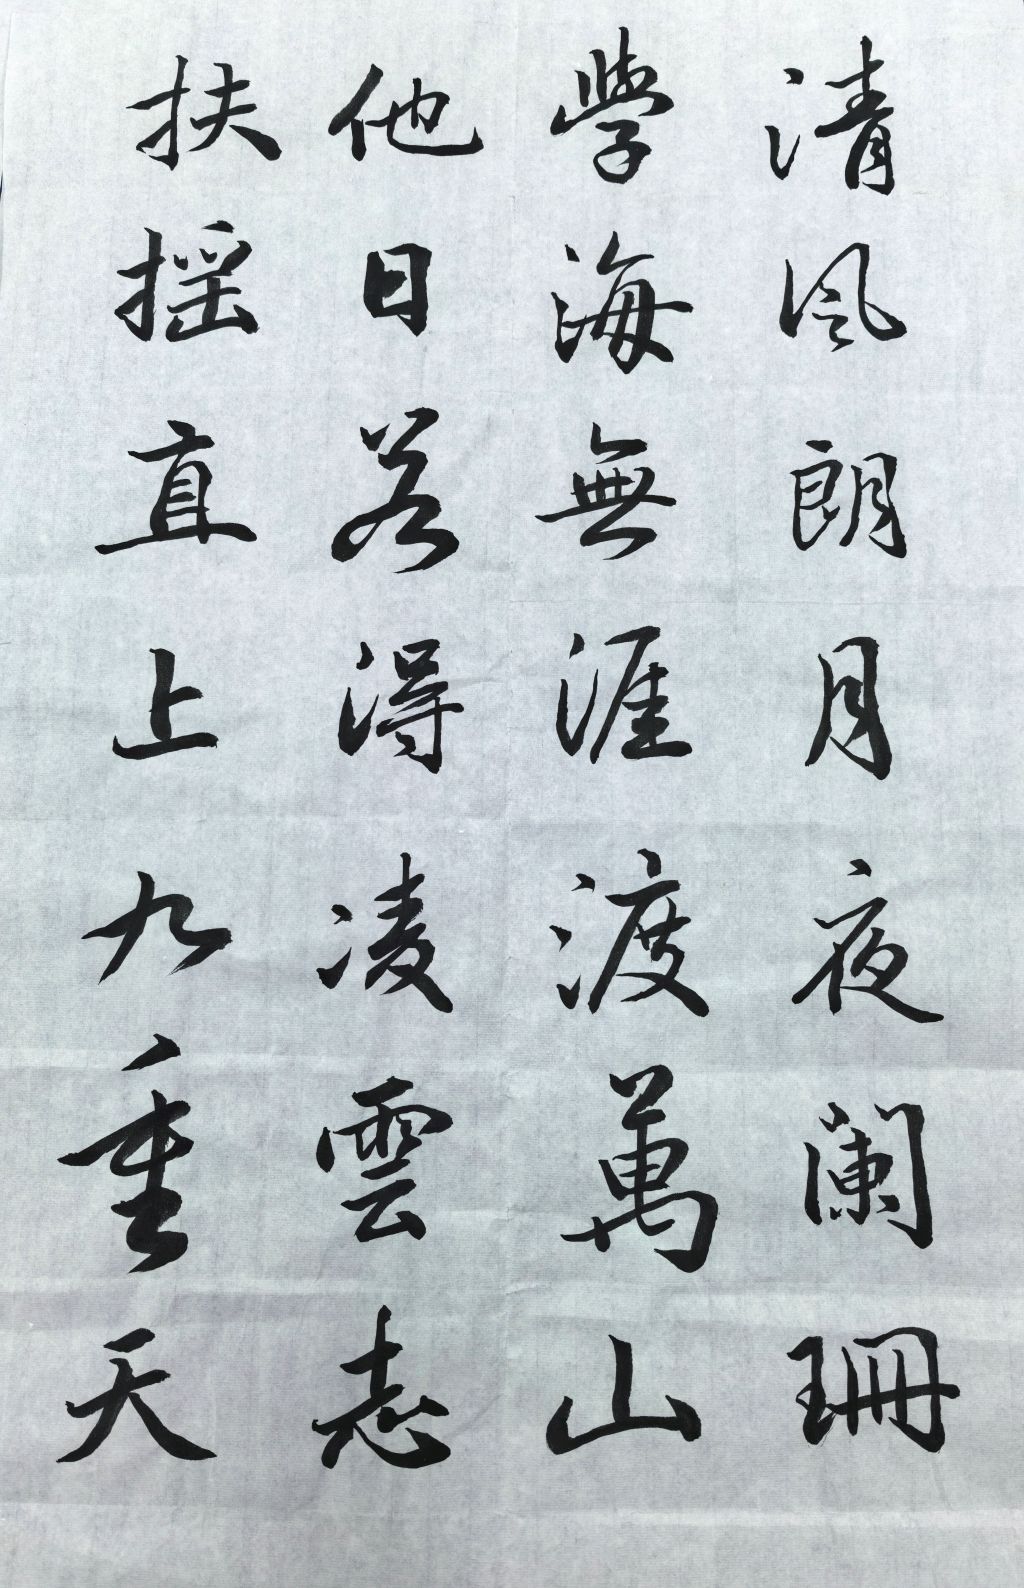 清風朗月夜闌珊
學海無涯渡萬山
他日若得凌雲志
扶摇直上九重天